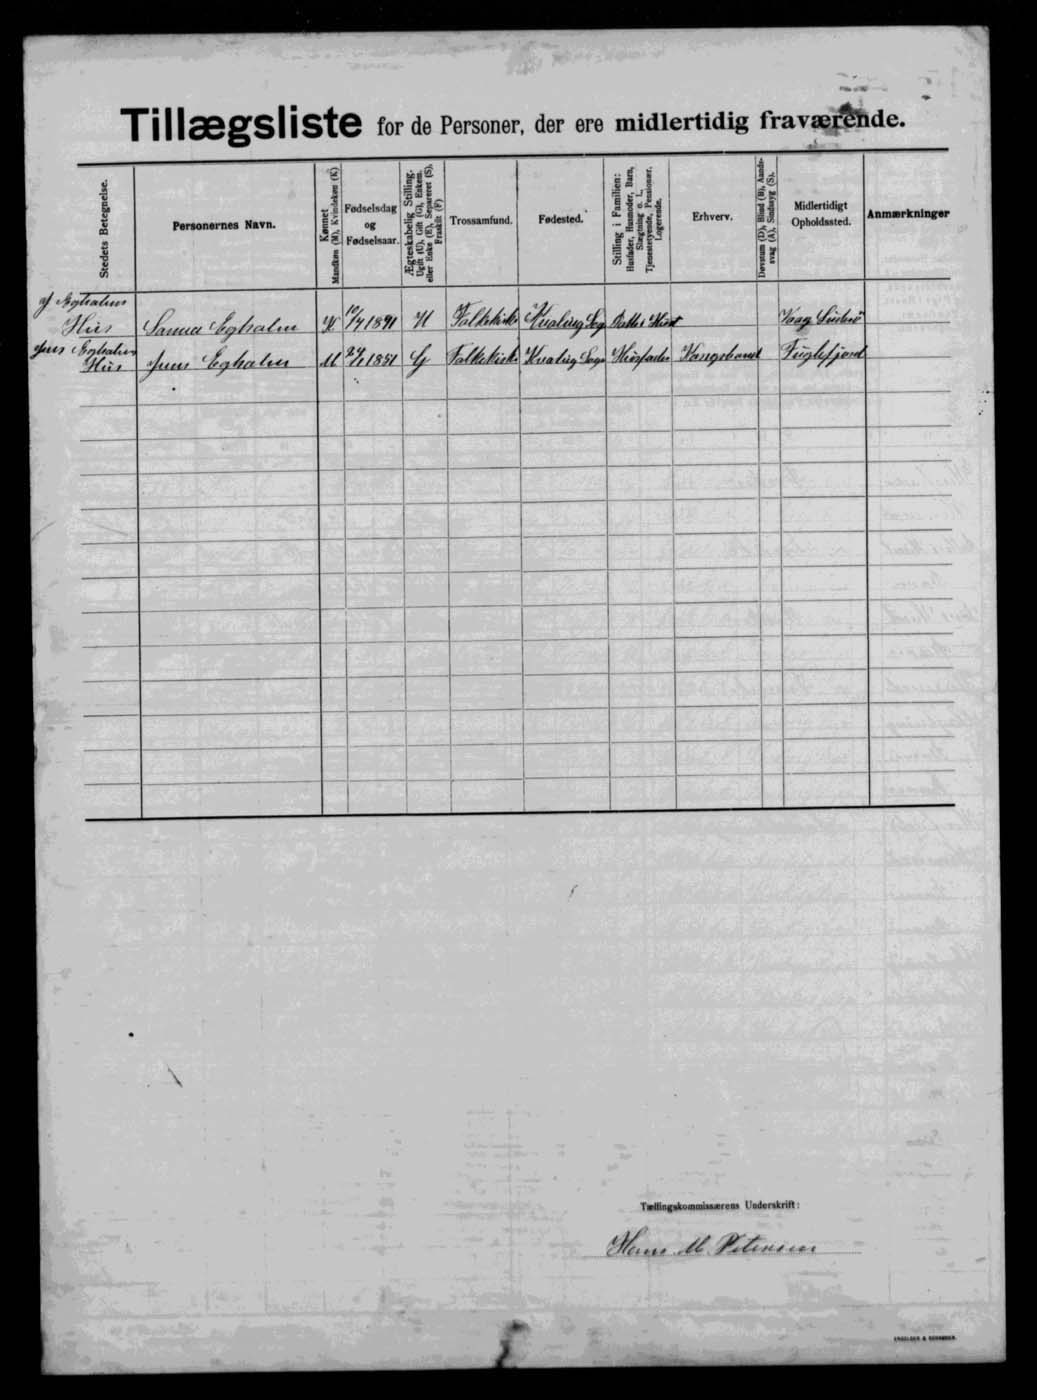 Tillægsliste for de Personer, der ere midlertidig fraværende.
Stedets Betegnelse.
Personernes Navn.
Kønnet
Mandkøn (M), Kvindekøn (K)
Fødselsdag
og
Fødselsaar.
Ægteskabelig Stilling.
Ugift (U), Gift (G), Enkem.
eller Enke (E), Separeret (S),
Fraskilt (F)
Trossamfund.
Fødested.
Stilling i Familien:
Husfader, Husmoder, Barn,
Slægtning o. l.,
Tjenestetyende, Pensionær,
Logerende.
Erhverv.
Døvstum (D), Blind (B), Aands-
svag (A), Sindssyg (S).
Midlertidigt
Opholdssted.
Anmærkninger
Egholms
Hus Sanna Egholm K 10/4 1891 U Folkekirke Kvalvig Sogn Datter Vaag Suderø
Jens Egholms
Hus Jens Egholm M 1851 G Folkekirke Kvalvig Sogn Husfader Kongsbonde Fuglefjord
Tællingskommissærens Underskrift:
Hans M. Petersen